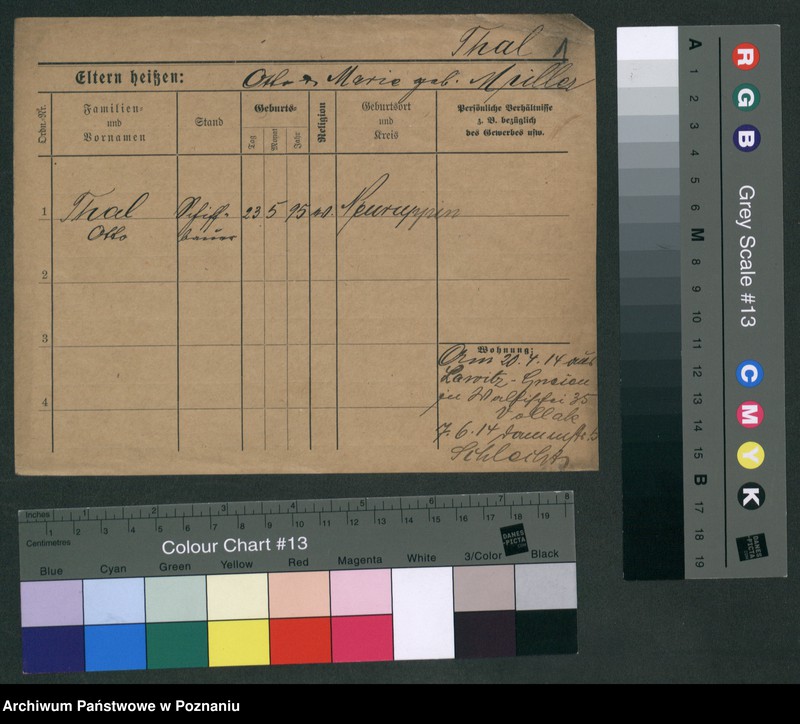 Thal
Eltern heißen: Otto u Marie geb. Müller
Ordn.-Nr.
Familien- und Vornamen
Stand
Geburts-
Tag
Monat
Jahr
Religion
Geburtsort und Kreis
Persönliche Verhältnisse z. B. bezüglich des Gewerbes usw.
1 Thal Schiff- 23 5 95 Neuruppin
Otto bauer
2
3
4
Wohnung:
Am 20.4.14 aus
in Wallischei 35
7.6.14
A 1 2 3 4 5 6 M 8 9 10 11 12 13 14 15 B 17 18 19
R G B
Grey Scale #13
C M Y K
DANES-PICTA
Inches 1 2 3 4 5 6 7 8
Centimetres 1 2 3 4 5 6 7 8 9 10 11 12 13 14 15 16 17 18 19
Colour Chart #13
DANES-PICTA
Blue Cyan Green Yellow Red Magenta White 3/Color Black
Archiwum Państwowe w Poznaniu